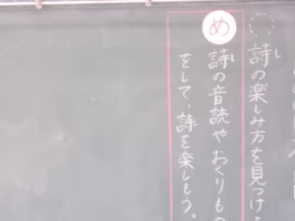 詩の楽しみ方を見つけ
め
詩の音読や、おくりもの
をして、詩を楽しもう。